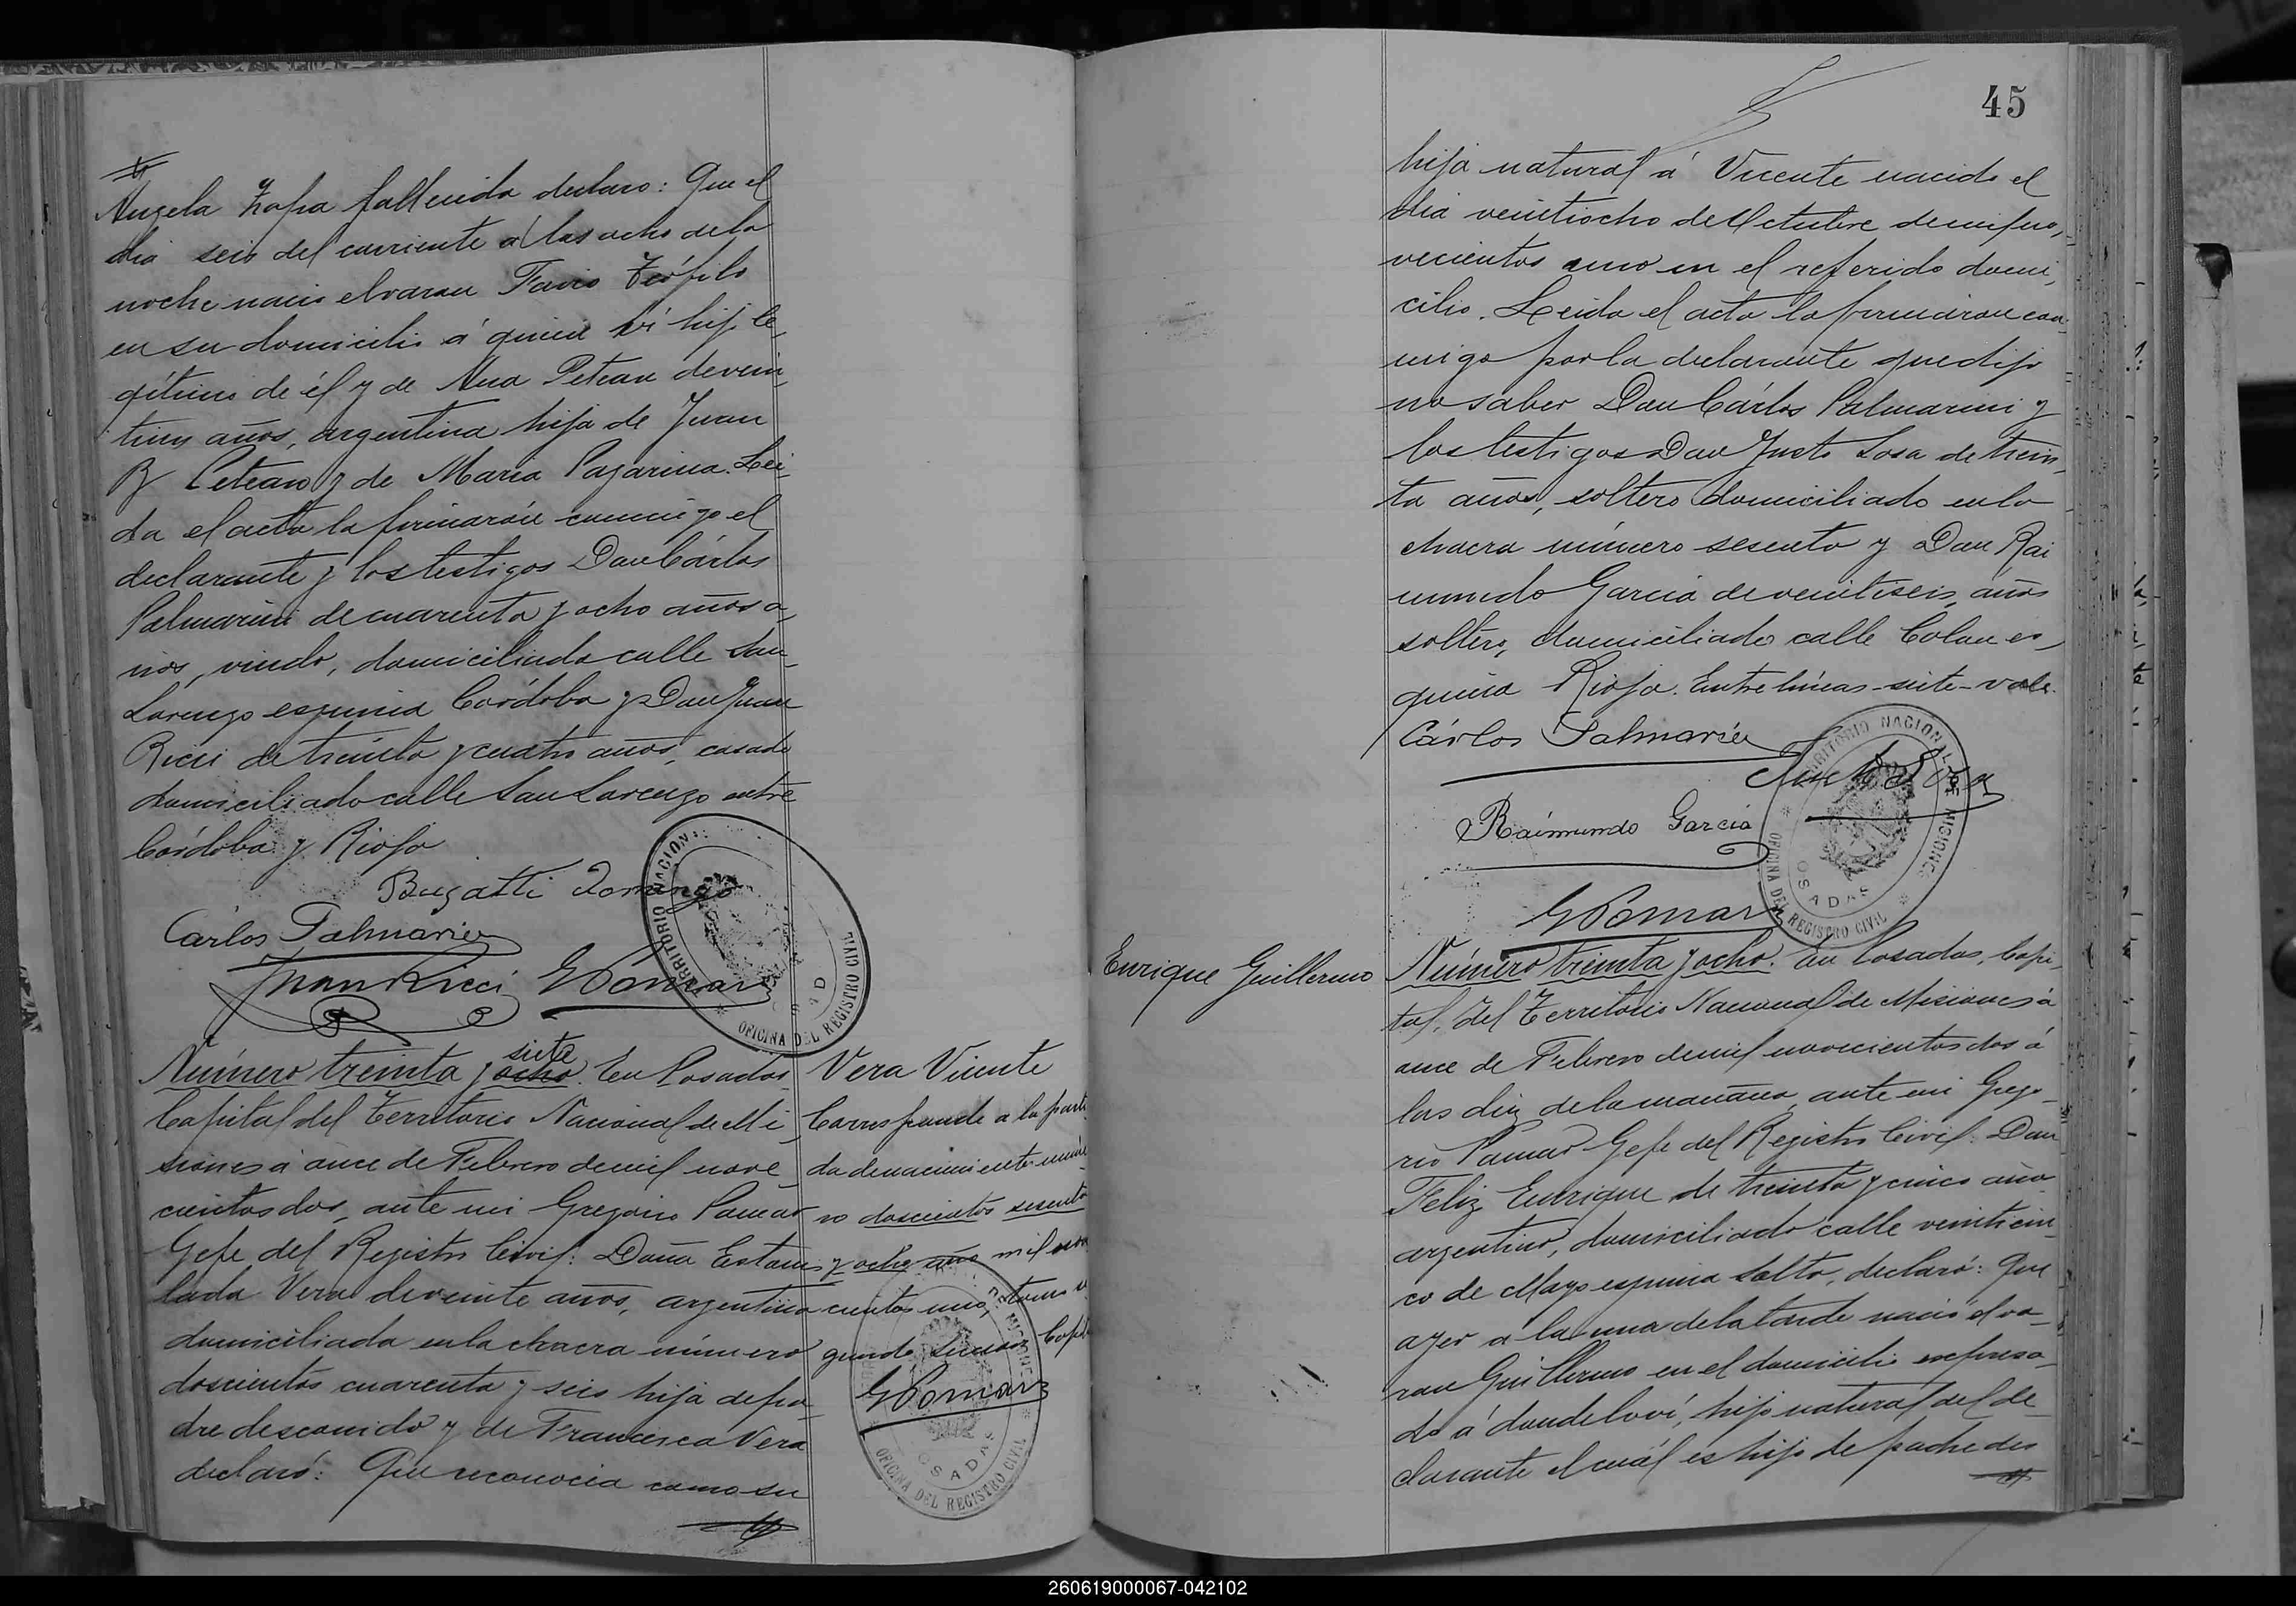 Angela Zapa fallecida declaro: Que el
dia seis del corriente á las ocho de la
noche nació el varon Favio Teófilo
en su domicilio á quien ví hijo le-
gítimo de él y de Ana Petean de vein-
tiun años, argentina hija de Juan
B Petean y de Maria Pagarina. Lei-
da el acta la firmarón conmigo el
declarante y los testigos Don Cárlos
Palmarini de cuarenta y ocho años a-
ños, viudo, domiciliado calle San
Lorenzo esquina Córdoba y Don Juan
Ricci de treinta y cuatro años, casado
domiciliado calle San Lorenzo entre
Córdoba y Rioja
Bugatti Domingo
Cárlos Palmarini
Juan Ricci GPomar
TERRITORIO NACIONAL
OFICINA DEL REGISTRO CIVIL
siete
Número treinta y ocho. En Posadas
Capital del Territorio Nacional de Mi-
siones á once de Febrero de mil nove
cientos dos, ante mi Gregorio Pomar
Gefe del Registro Civil: Doña Estanis
lada Vera de veinte años, argentina
domiciliada en la chacra número
doscientos cuarenta y seis hija de pa-
dre desconocido y de Francisca Vera
declaró: Que reconocia como su
Vera Vicente
Corresponde a la parti
da de nacimiento núme
ro doscientos sesenta
y ocho año mil nove
cientos uno, tomo se
gundo seccion Capi
GPomar
OFICINA DEL REGISTRO CIVIL
POSADAS
45
hijo natural á Vicente nacido el
dia veintiocho de Octubre de mil no-
vecientos uno en el referido domi-
cilio. Leida el acta la firmarón con-
migo por la declarante que dijo
no saber Don Cárlos Palmarini y
los testigos Don Justo Sosa de trein-
ta años, soltero domiciliado en la
chacra número sesenta y Don Rai
mundo Garcia de veintiseis años
soltero, domiciliado calle Colon es-
quina Rioja. Entre líneas-siete-vale.
Cárlos Palmarini
Justo Sosa
Raimundo Garcia
GPomar
TERRITORIO NACIONAL DE MISIONES
POSADAS
OFICINA DEL REGISTRO CIVIL
Enrique Guillermo
Número treinta y ocho. En Posadas, Capi-
tal, del Territorio Nacional de Misiones á
once de Febrero de mil novecientos dos á
las diez de la mañana, ante mi Grego-
rio Pomar Gefe del Registro Civil: Don
Feliz Enrique de treinta y cinco años
argentino, domiciliado calle veinticin-
co de Mayo esquina Salta, declaró: Que
ayer a la una de la tarde nació el va-
ron Guillermo en el domicilio espresa-
do á donde lo ví, hijo natural del de-
clarante el cuál es hijo de padre des
260619000067-042102